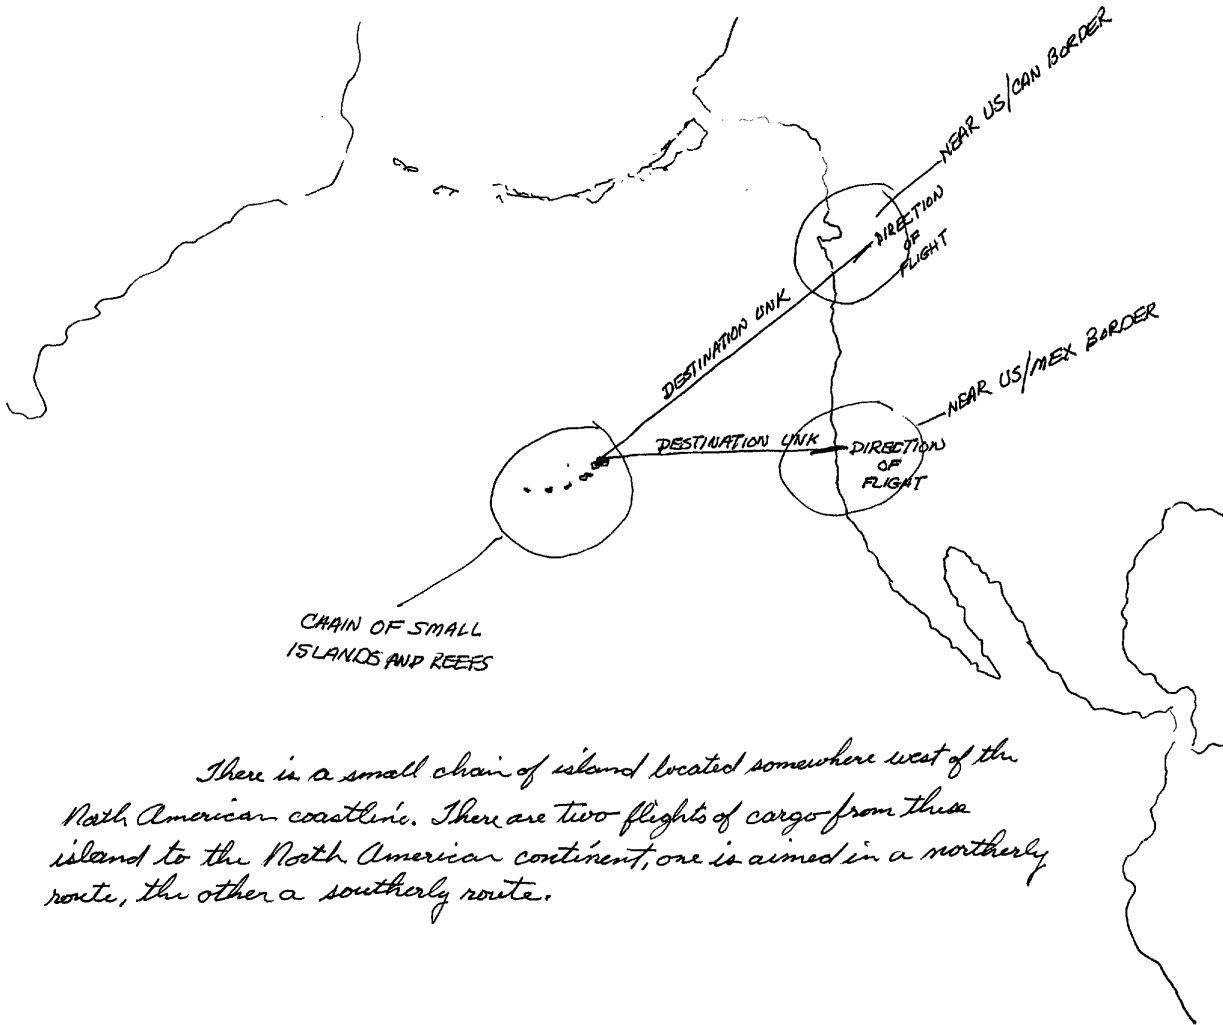 NEAR US/CAN BORDER
DIRECTION
OF
FLIGHT
DESTINATION LINK
NEAR US/MEX BORDER
DESTINATION LINK
DIRECTION
OF
FLIGHT
CHAIN OF SMALL
ISLANDS AND REEFS
There is a small chain of island located somewhere west of the
North American coastline. There are two flights of cargo from these
island to the North American continent, one is aimed in a northerly
route, the other a southerly route.